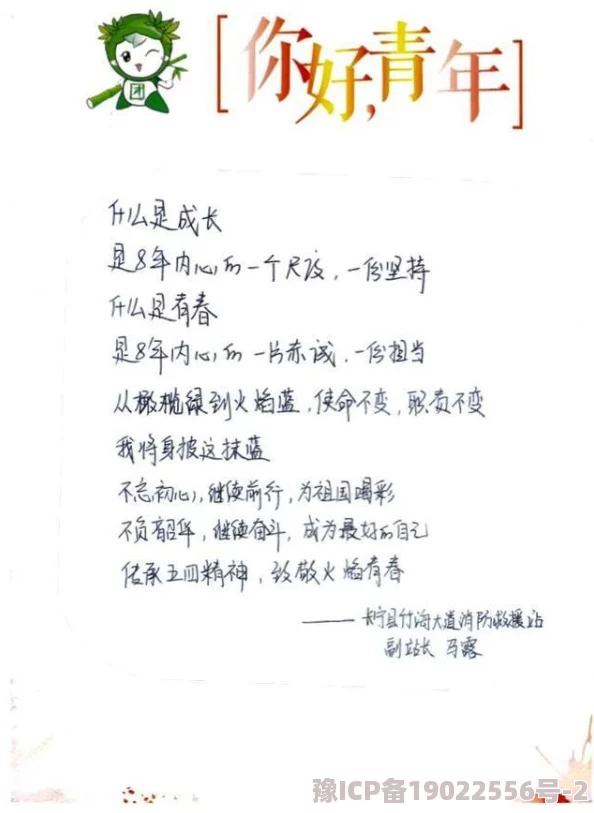 团
[你好,青年]
什么是成长
是8年内心的一个尺度，一份坚持
什么是青春
是8年内心的一片赤诚，一份担当
从橄榄绿到火焰蓝，使命不变，职责不变
我将身披这抹蓝
不忘初心，继续前行，为祖国喝彩
不负韶华，继续奋斗，成为最好的自己
传承五四精神，致敬火焰青春
——长宁县竹海大道消防救援站
副站长 马露
豫ICP备19022556号-2